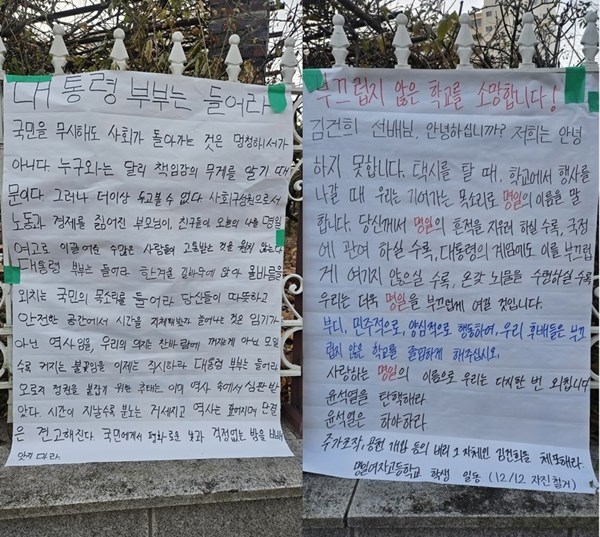 대통령 부부는 들어라
국민을 무시해도 사회가 돌아가는 것은 멍청해서가
아니다. 누구와는 달리 책임감의 무게를 알기 때
문이다. 그러나 더이상 두고볼 수 없다. 사회구성원으로서
노동과 경제를 짊어진 부모님이, 친구들이 오늘의 나를 명일
여고로 이끌어준 수많은 사람들이 고통받는 것을 원치 않는다.
대통령 부부는 들어라 한겨울 길바닥에 앉아 올바름을
외치는 국민의 목소리를 들어라 당신들이 따뜻하고
안전한 공간에서 시간을 지체해봤자 늘어나는 것은 임기가
아닌 역사임을, 우리의 의지는 찬바람에 꺼지는게 아닌 모일
수록 커지는 불꽃임을 이제는 직시하라 대통령 부부는 들어라
오로지 정권을 붙잡기 위한 추태는 이미 역사 속에서 심판 받
았다. 시간이 지날수록 분노는 거세지고 역사는 깊어지며 단결
은 견고해진다. 국민에게서 평화로운 낮과 걱정없는 밤을
부끄럽지 않은 학교를 소망합니다!
김건희 선배님, 안녕하십니까? 저희는 안녕
하지 못합니다. 택시를 탈 때, 학교에서 행사를
나갈 때 우리는 기어가는 목소리로 명일의 이름을 말
합니다. 당신께서 명일의 흔적을 지우려 하실 수록, 국정
에 관여 하실 수록, 대통령의 계엄에도 이를 부끄럽
게 여기지 않으실 수록, 온갖 뇌물을 수령하실 수록
우리는 더욱 명일을 부끄럽게 여길 것입니다.
부디, 민주적으로, 양심적으로 행동하여, 우리 후배들은 부끄
럽지 않은 학교를 졸업하게 해주십시오.
사랑하는 명일의 이름으로 우리는 다시한 번 외칩니다
윤석열을 탄핵해라
윤석열은 하야하라
주가조작, 공천 개입 등의 비리 그 자체인 김건희를 체포해라.
명일여자고등학교 학생 일동 (12/12 자진철거)